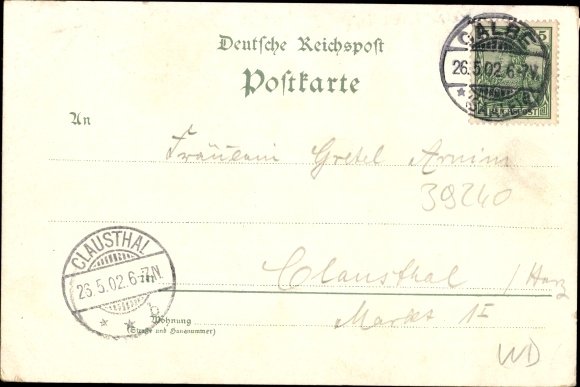 Deutsche Reichspost
Postkarte
CALBE
5
26.5.02.6-7N.
* (SAALE)
An
Fräulein Gretel Arnim
39240
CLAUSTHAL
26.5.02.6-7N.
* * b
Clausthal / Harz
Markt
Wohnung
(Straße und Hausnummer)
WD